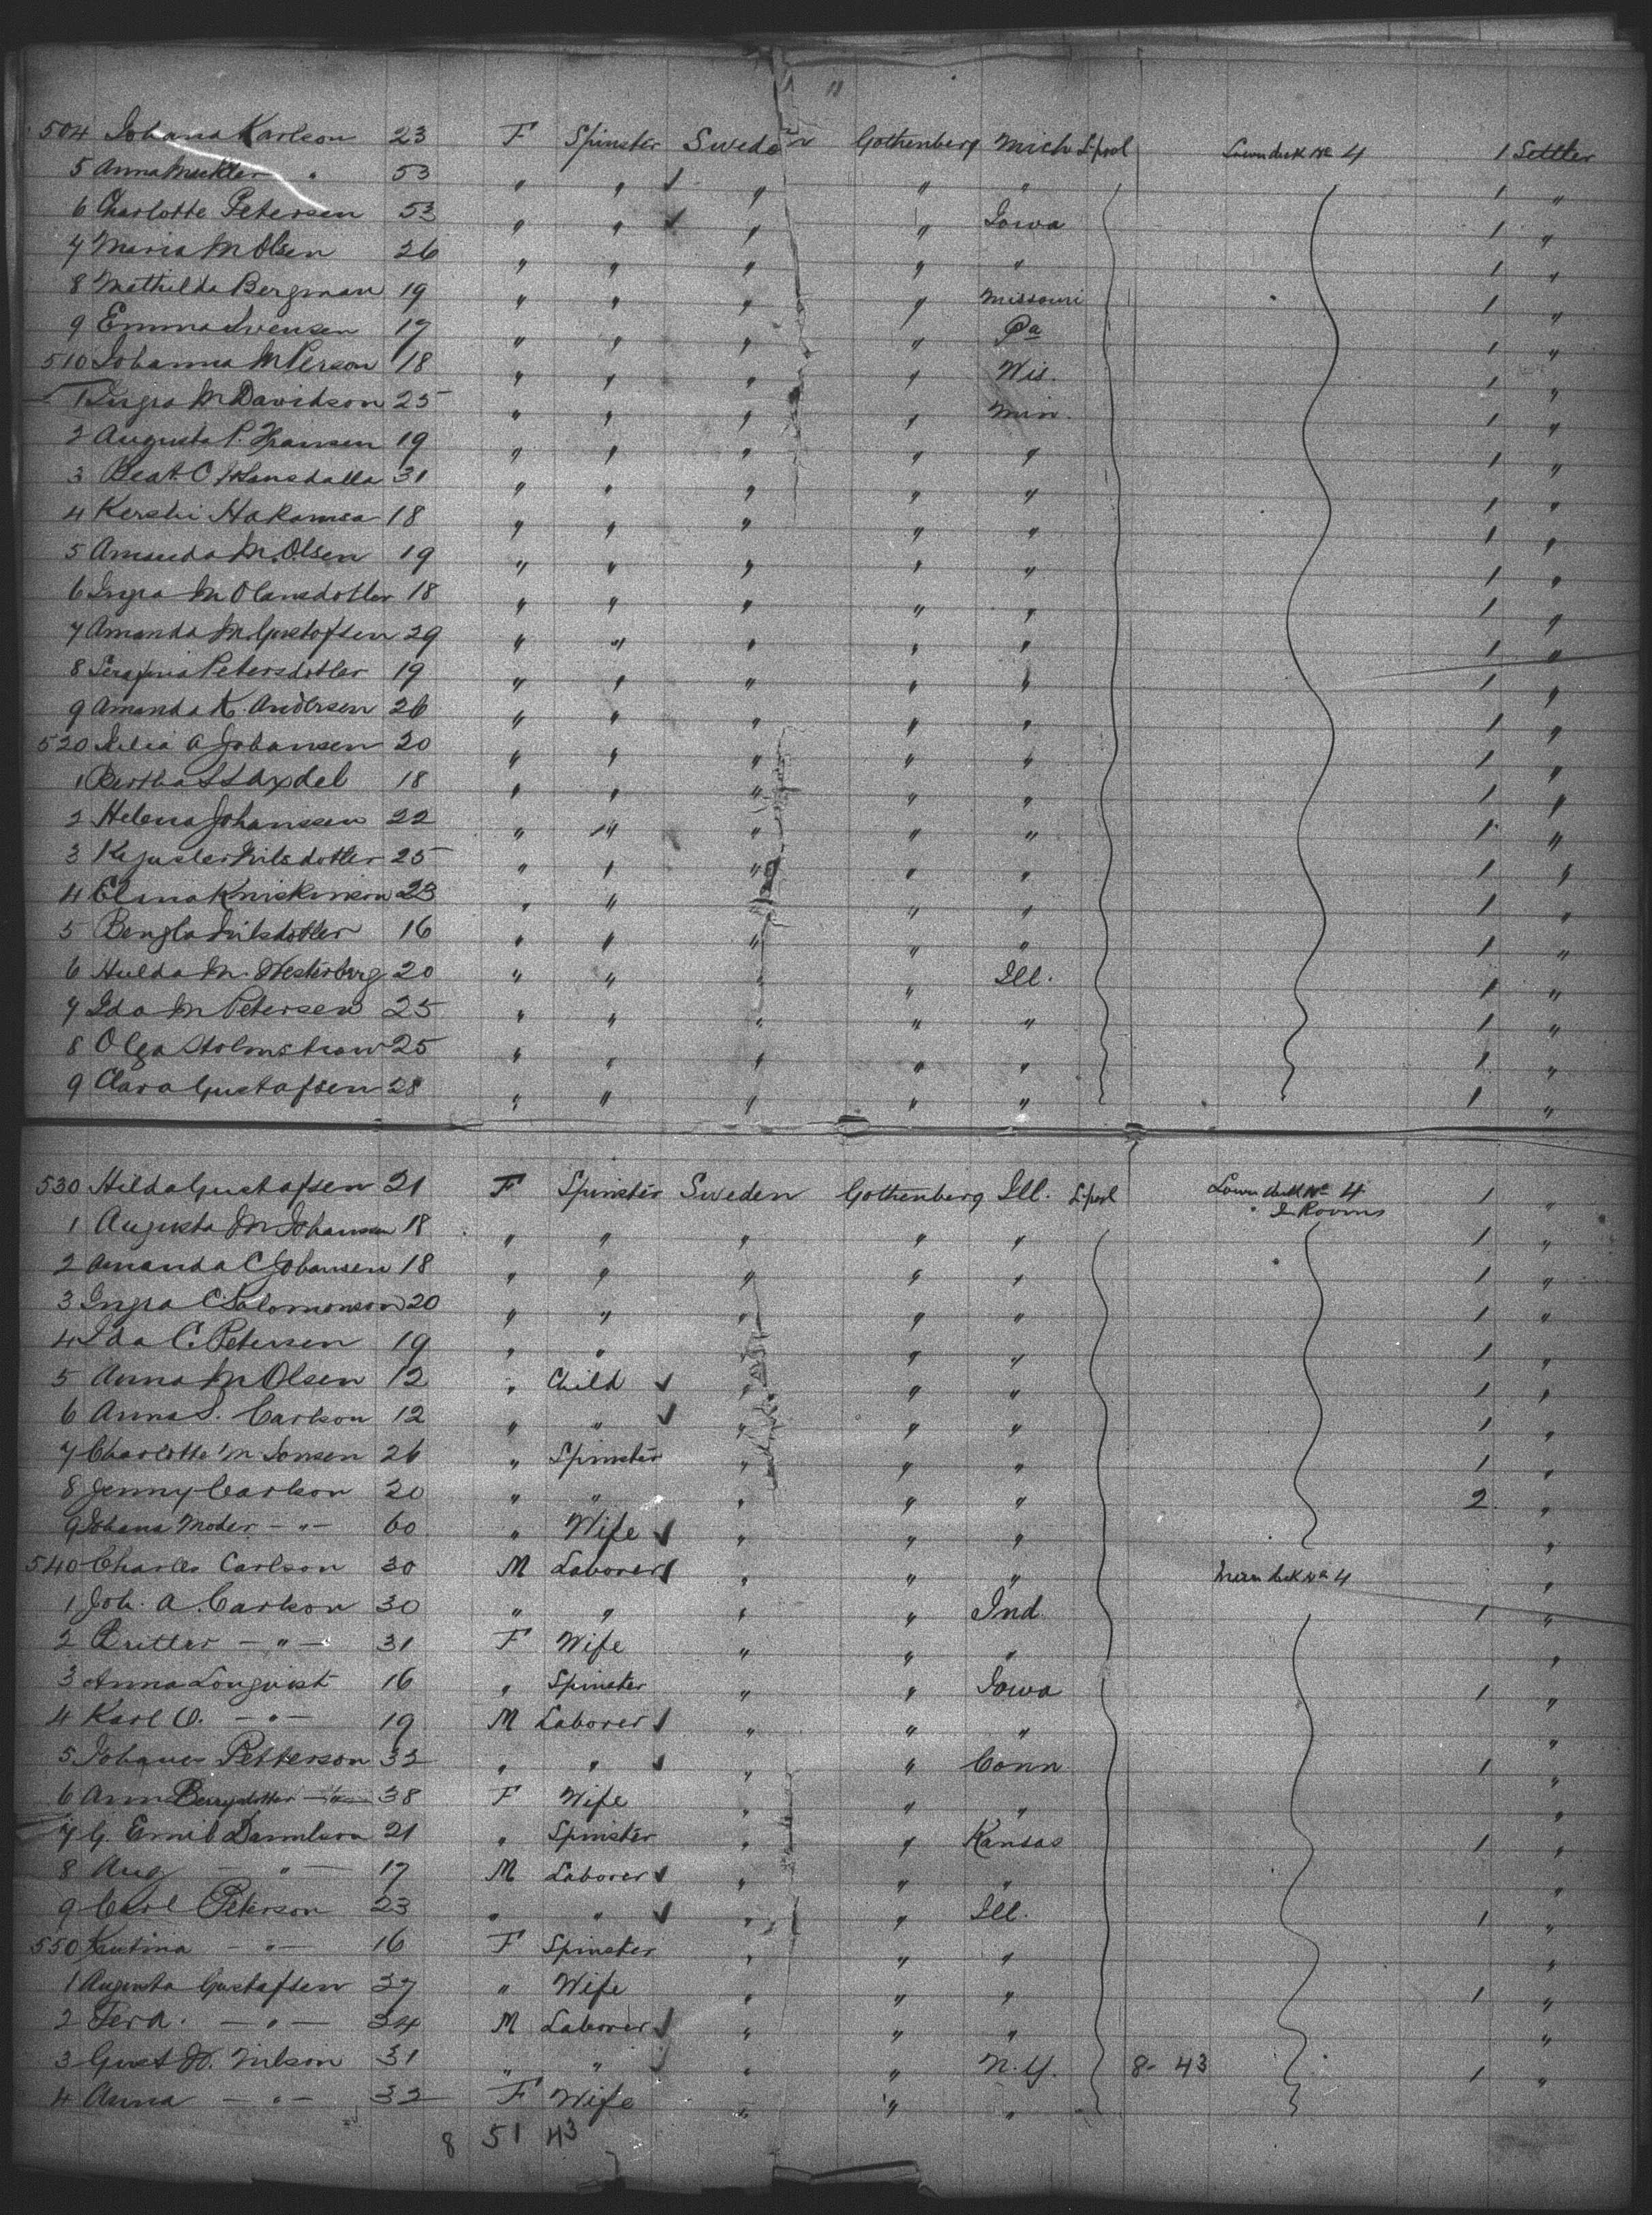 "
504 Johana Karlson 23 F Spinster Sweden Gothenberg Mich Lpool Lower deck No 4 1 Settler
5 Anna " 53 " " ✓ " " " 1 "
6 Charlotte Petersen 53 " " ✓ " " Iowa 1 "
7 Maria M Olsen 26 " " " " " 1 "
8 Mathilda Bergman 19 " " " " Missouri 1 "
9 Emma Svensen 17 " " " " Pa 1 "
510 Johanna M Person 18 " " " " Wis. 1 "
1 Ingra M Davidson 25 " " " " Min. 1 "
2 Augusta P. Fransen 19 " " " " " 1 "
3 Beat. C 31 " " " " " 1 "
4 Kersti 18 " " " " " 1 "
5 Amanda M. Olsen 19 " " " " " 1 "
6 Ingra M Olansdotter 18 " " " " " 1 "
7 Amanda M. Gustofsen 29 " " " " " 1 "
8 Serafina Petersdotter 19 " " " " " 1 "
9 Amanda K. Andersen 26 " " " " " 1 "
520 A Johansen 20 " " " " " 1 "
1 Bertha S Axdel 18 " " " " " 1 "
2 Helena Johanssen 22 " " " " " 1 "
3 Nilsdotter 25 " " " " " 1 "
4 Elina 23 " " " " " 1 "
5 Bengta Nilsdotter 16 " " " " " 1 "
6 Hulda M. Westerberg 20 " " " " Ill. 1 "
7 Ida M Petersen 25 " " " " " 1 "
8 Olga Holmstrom 25 " " " " " 1 "
9 Clara Gustafsen 28 " " " " " 1 "
530 Hilda Gustafsen 21 F Spinster Sweden Gothenberg Ill. Lpool Lower deck No 4 1 "
In Rooms
1 Augusta M Johansen 18 " " " " " 1 "
2 Amanda C Johansen 18 " " " " " 1 "
3 Ingra C. Solomonson 20 " " " " " 1 "
4 Ida C. Petersen 19 " " " " " 1 "
5 Anna M Olsen 12 " Child ✓ " " " 1 "
6 Anna S. Carlson 12 " " ✓ " " " 1 "
7 Charlotte M Jonsen 26 " Spinster " " " 1 "
8 Jenny Carlson 20 " " " " " 2 "
9 Johana Moder - " - 60 " Wife ✓ " " " "
540 Charles Carlson 30 M Laborer ✓ " " " Main deck No 4 "
1 Joh. A. Carlson 30 " " " " Ind. 1 "
2 Britta - " - 31 F Wife " " " "
3 Anna Lonqvist 16 " Spinster " " Iowa 1 "
4 Karl O. - " - 19 M Laborer ✓ " " " "
5 Johanes Petterson 32 " " ✓ " " Conn 1 "
6 Ann - " - 38 F Wife " " " "
7 G. Emil Danielson 21 " Spinster " " Kansas 1 "
8 Aug - " - 17 M Laborer ✓ " " " "
9 Carl Peterson 23 " " ✓ " " Ill. 1 "
550 - " - 16 F Spinster " " " "
1 Augusta Gustafsen 37 " Wife " " " 1 "
2 Ferd. - " - 34 M Laborer ✓ " " " "
3 Gust W. Nilson 31 " " ✓ " " N.Y. 8- 43 1 "
4 Anna - " - 32 F Wife " " " "
8 51 43